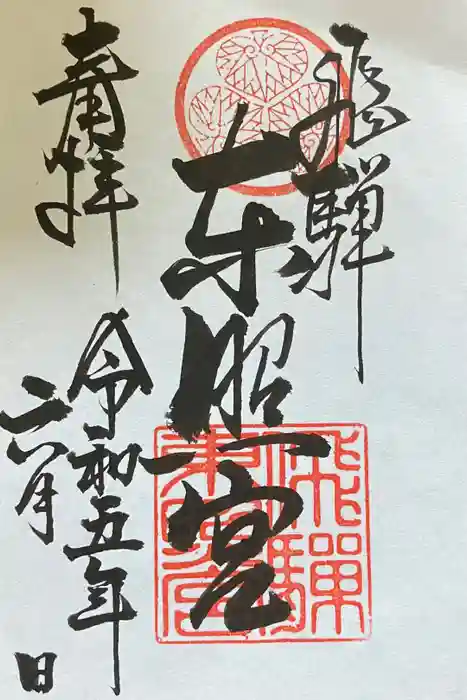 飛騨
東照宮
奉拝
令和五年
六月
日
飛騨
東照宮